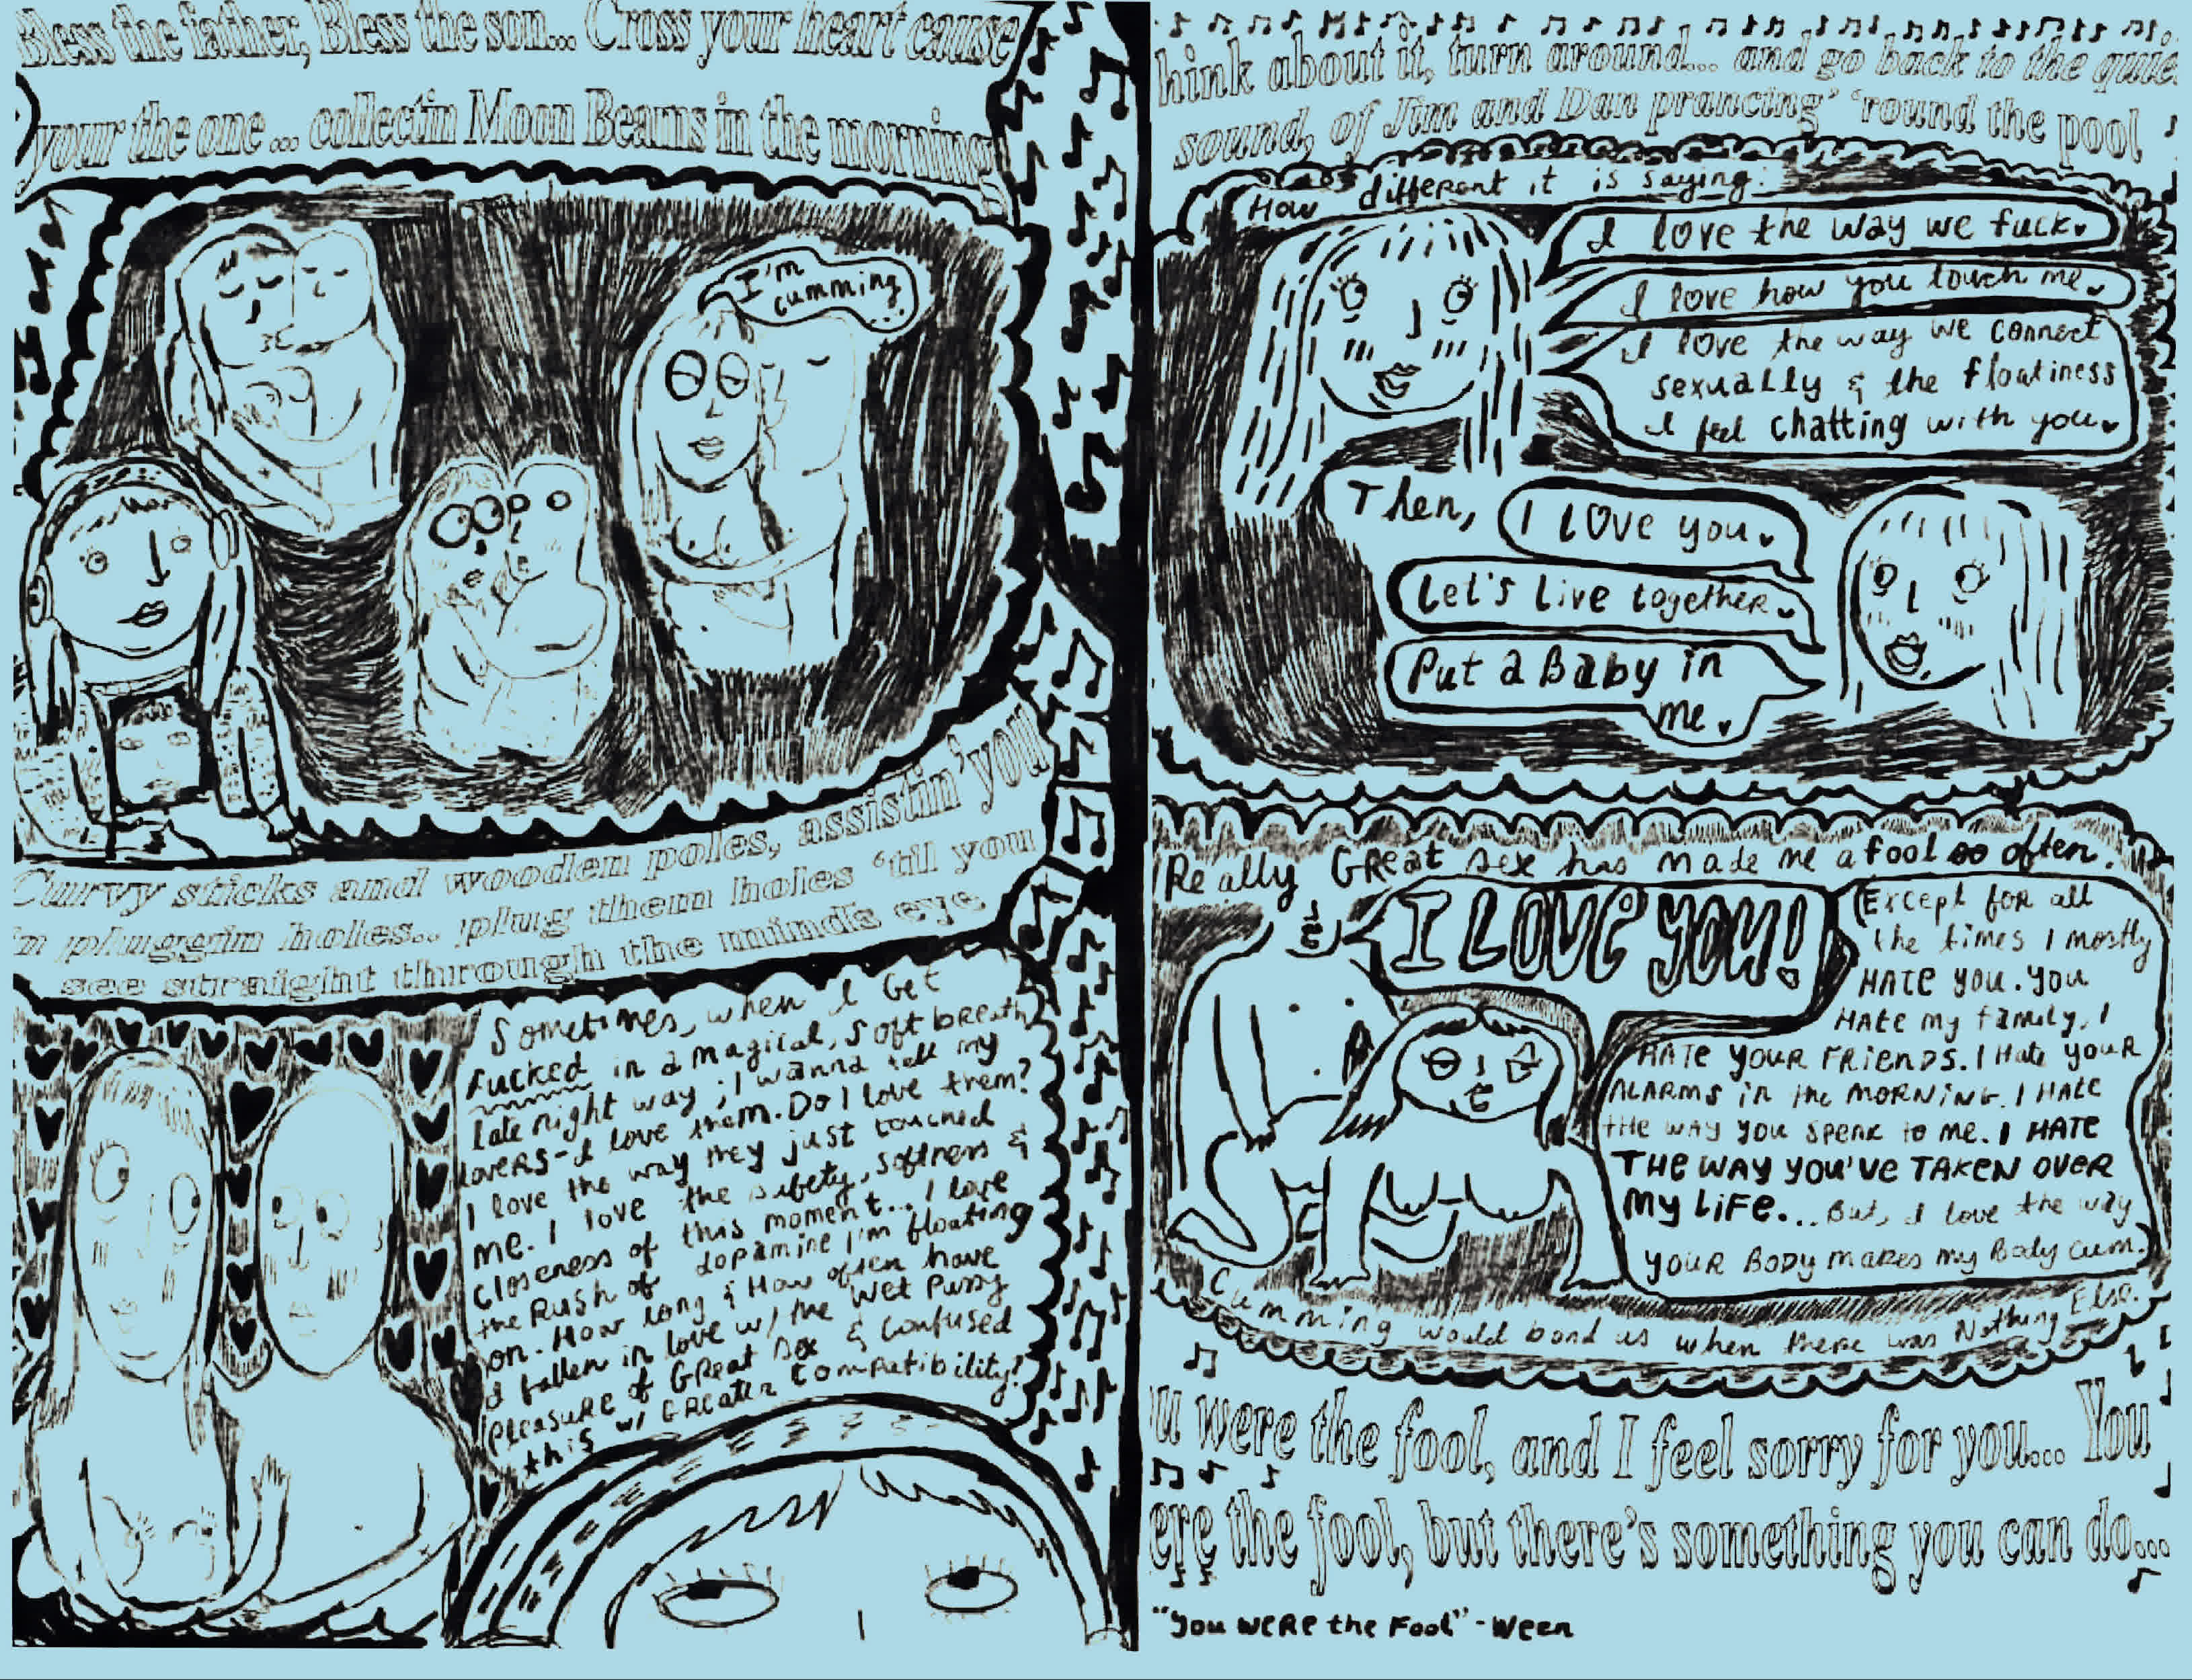 Bless the father, Bless the son... Cross your heart cause
your the one... collectin Moon Beams in the morning
I'm
cumming
Curvy sticks and wooden poles, assistin' you
in pluggin holes.. plug them holes 'til you
see straight through the minds eye
Sometimes, when I get
fucked in a magical, soft breath
late night way; I wanna tell my
lovers - I love them. Do I love them?
I love the way they just touched
me. I love the safety, softness &
closeness of this moment... I love
the Rush of dopamine I'm floating
on. How long & How often have
I fallen in love w/ the wet Pussy
pleasure of Great sex & confused
this w/ Greater Compatibility?
hink about it, turn around... and go back to the quie
sound, of Jim and Dan prancing' 'round the pool
How different it is saying:
I love the way we fuck.
I love how you touch me.
I love the way we connect
sexually & the floatiness
I feel chatting with you.
Then,
I LOVE you.
Let's Live together.
Put a Baby in
me.
Really Great sex has made me a fool so often.
I LOVE YOU!
Except for all
the times I mostly
HATE you. You
HATE my family, I
HATE YOUR FRIENDS. I Hate your
ALARMS in the MORNING. I HATE
THE WAY you SPEAK to me. I HATE
THE WAY YOU'VE TAKEN OVER
MY LIFE... But, I love the way
YOUR BODY MAKES my Body cum.
Cumming would bond us when there was Nothing Else.
u were the fool, and I feel sorry for you... You
ere the fool, but there's something you can do...
"You WERE the Fool" - Ween